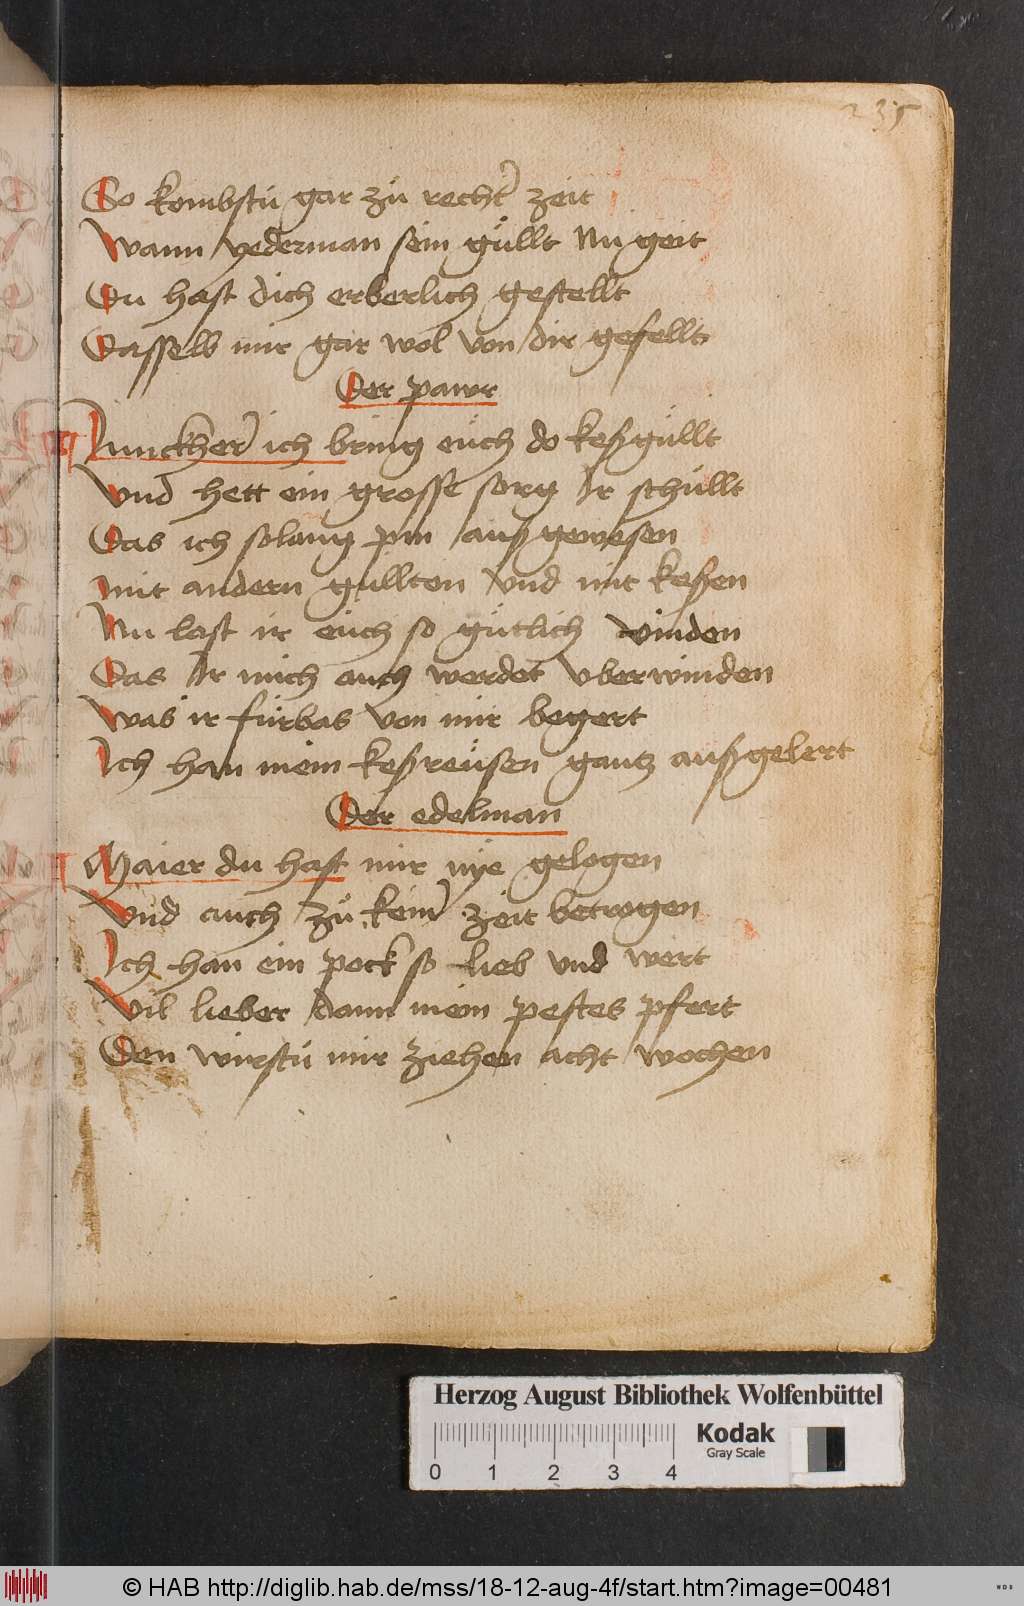 235
So kombstu gar zu recht' zeit
Wann yederman sein güllt nu geit
Du hast dich erberlich gestellt
Dasselb mir gar wol von dir gefellt
Der pawr
Junckher' ich bring euch do keßgüllt
Vnd hett ein grosse sorg Ir schüllt
Das ich solang pin außgewesen
mit andern gullten vnd mit keßen
Nu last ir euch so gütlich vinden
Das Ir mich auch werdet vberwinden
Was ir fürbas von mir begert
Ich han mein keßreüsen gantz außgelert
Der edelman
Maier du hast mir nye gelogen
Vnd auch zu kein' zeit betrogen
Ich han ein pock so lieb vnd wert
Vil lieber dann mein pestes pfert
Den wirstu mir ziehen acht wochen
Herzog August Bibliothek Wolfenbüttel
Kodak
Gray Scale
0 1 2 3 4
© HAB http://diglib.hab.de/mss/18-12-aug-4f/start.htm?image=00481